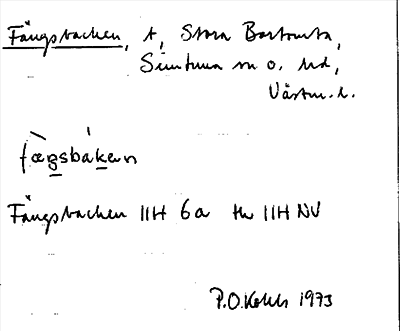 Fängsbacken, t, Stora Bastmora,
Simtuna sn o. hd,
Västm. l.
fæŋsbakən
Fängsbacken 11H 6a tk 11H NV
P.O. 1973